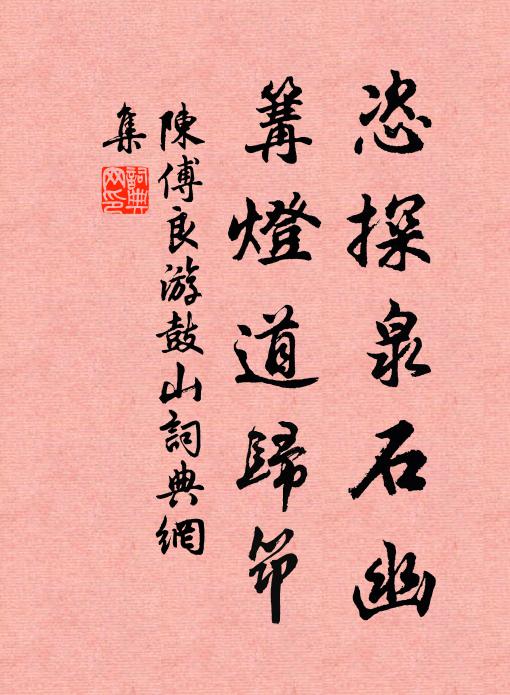 恣探泉石幽
篝燈道歸筇
陳傅良游鼓山詞典網
集
詞典
网印